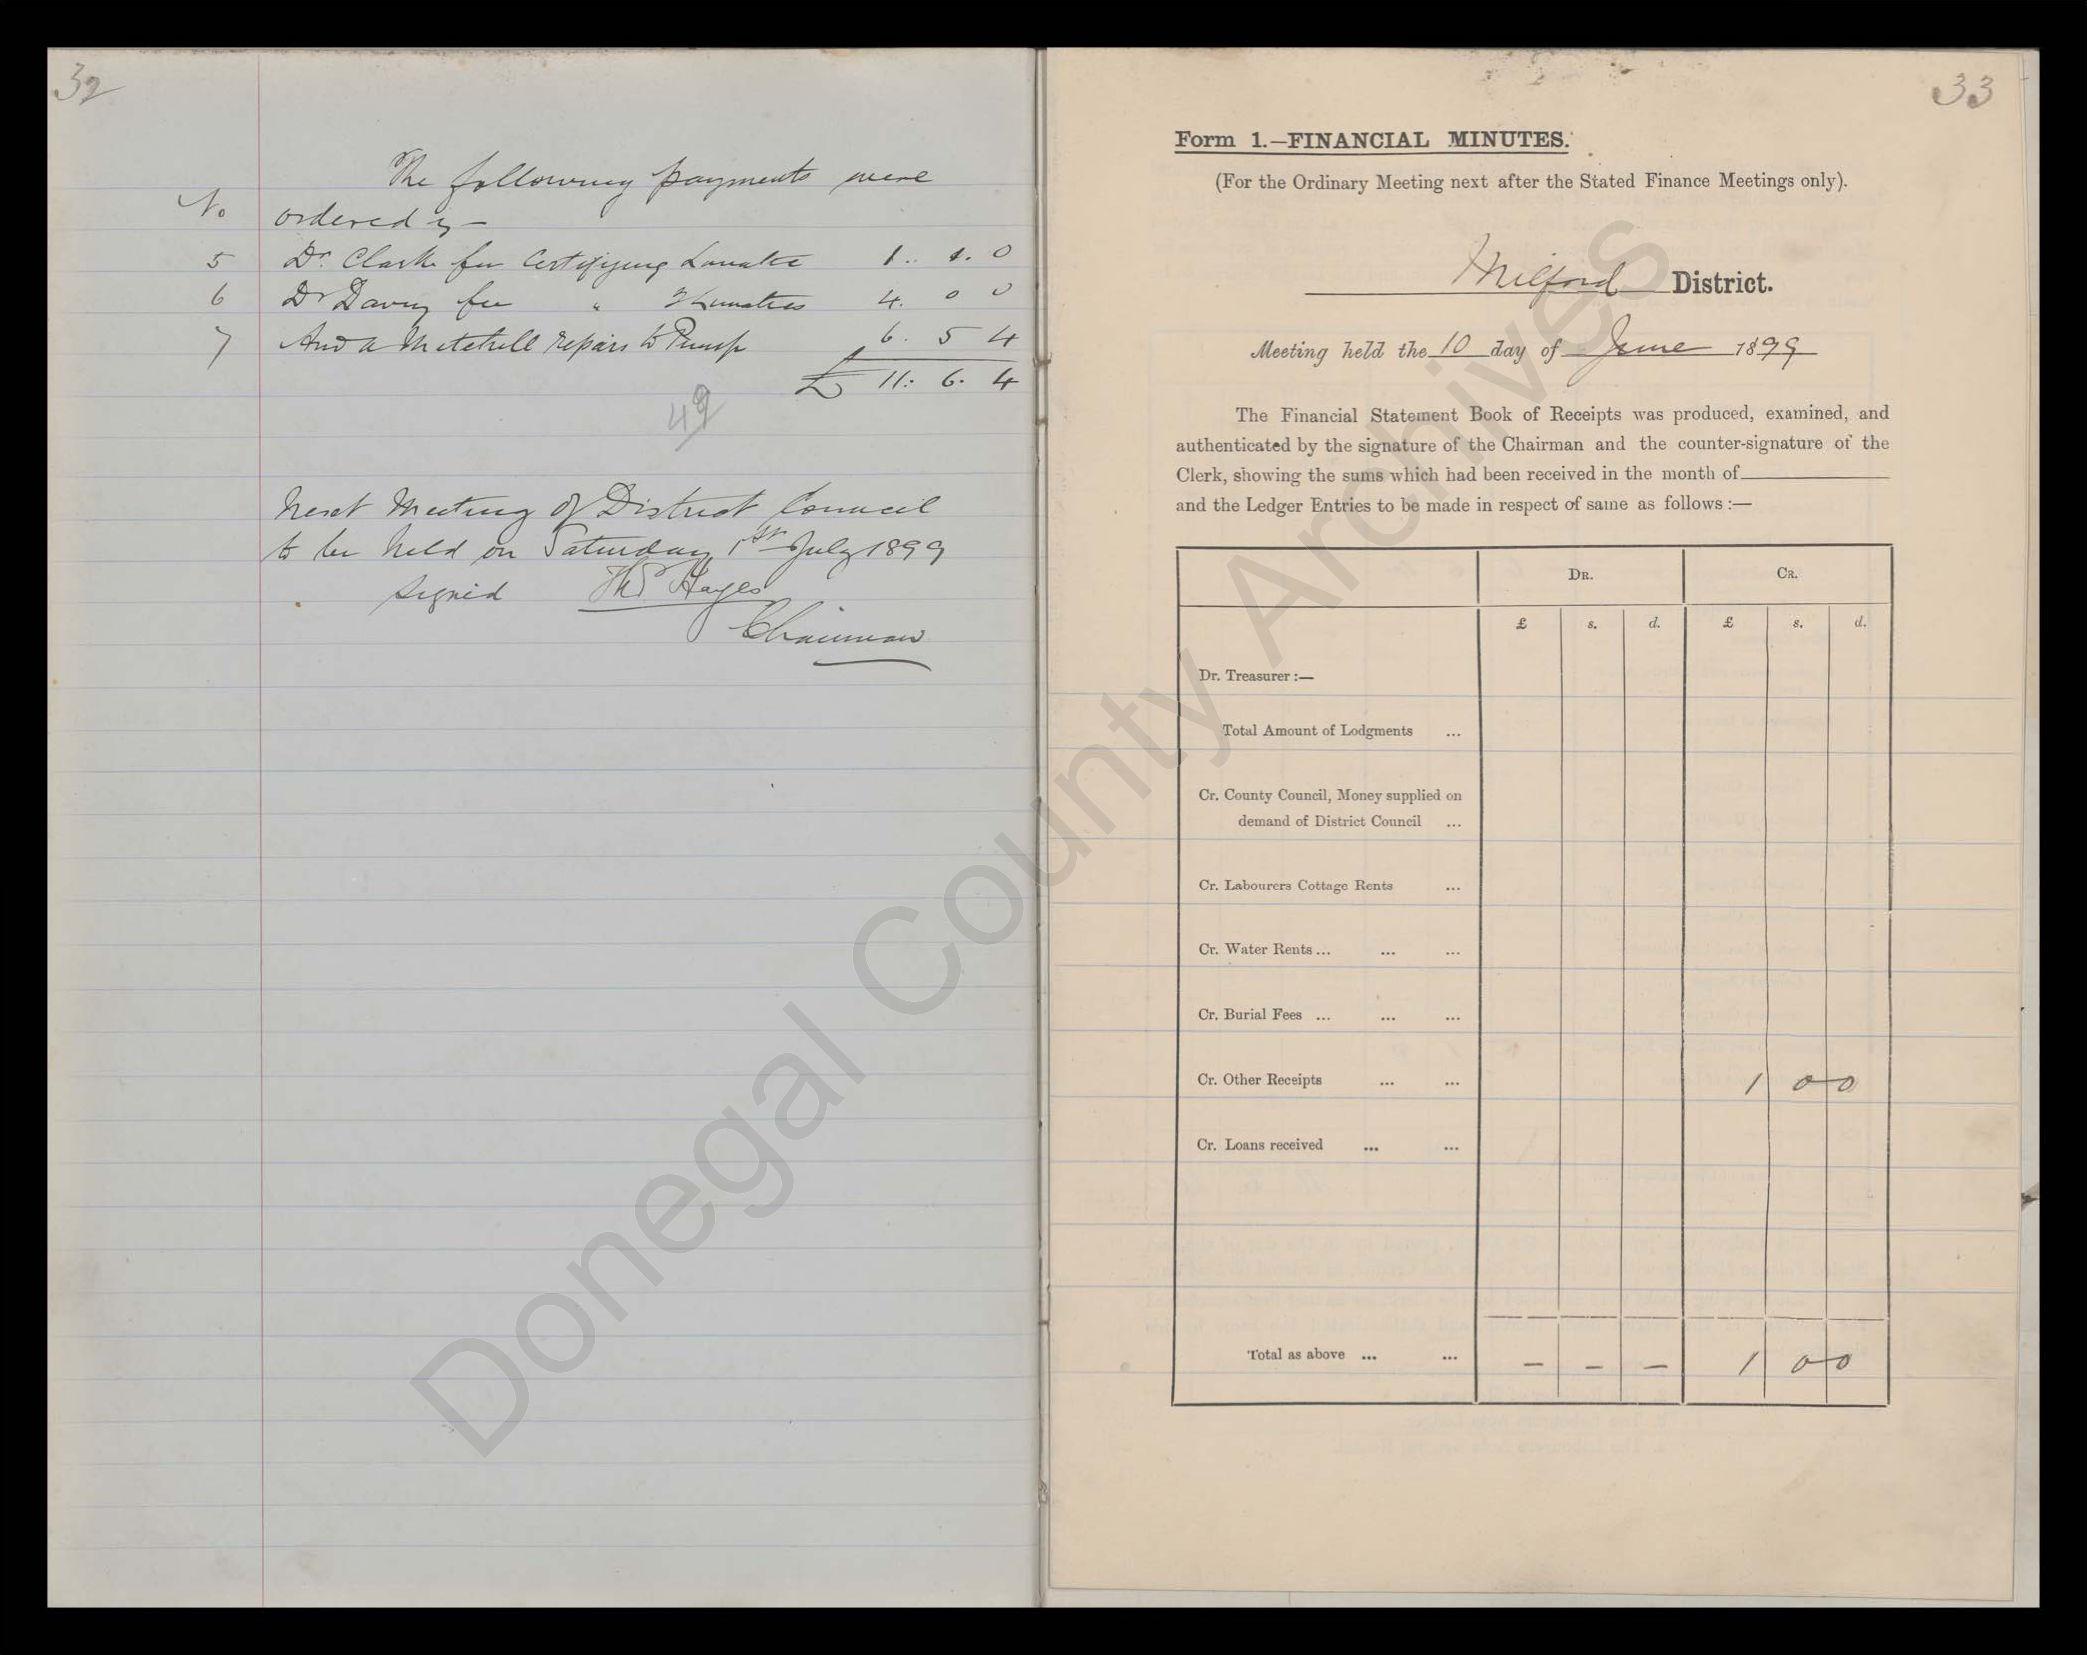 32
The following payments were
No ordered :-
5 Dr. Clarke fee Certifying Lunatic 1 . 1 . 0
6 Dr Davey fee " Lunatics 4 . 0 0
7 And a Mitchell repairs to Pump 6 . 5 4
£ 11 : 6 . 4
49
Next Meeting of District Council
to be held on Saturday 1st July 1899
Signed Thos Hayes
Chairman
33
Form 1.—FINANCIAL MINUTES.
(For the Ordinary Meeting next after the Stated Finance Meetings only).
Milford District.
Meeting held the 10 day of June 1899
The Financial Statement Book of Receipts was produced, examined, and
authenticated by the signature of the Chairman and the counter-signature of the
Clerk, showing the sums which had been received in the month of
and the Ledger Entries to be made in respect of same as follows :—
DR. CR.
£ s. d. £ s. d.
Dr. Treasurer :—
Total Amount of Lodgments ...
Cr. County Council, Money supplied on
demand of District Council ...
Cr. Labourers Cottage Rents ...
Cr. Water Rents ... ... ...
Cr. Burial Fees ... ... ...
Cr. Other Receipts ... ... 1 0 0
Cr. Loans received ... ...
Total as above ... ... — — — 1 0 0
Donegal County Archives